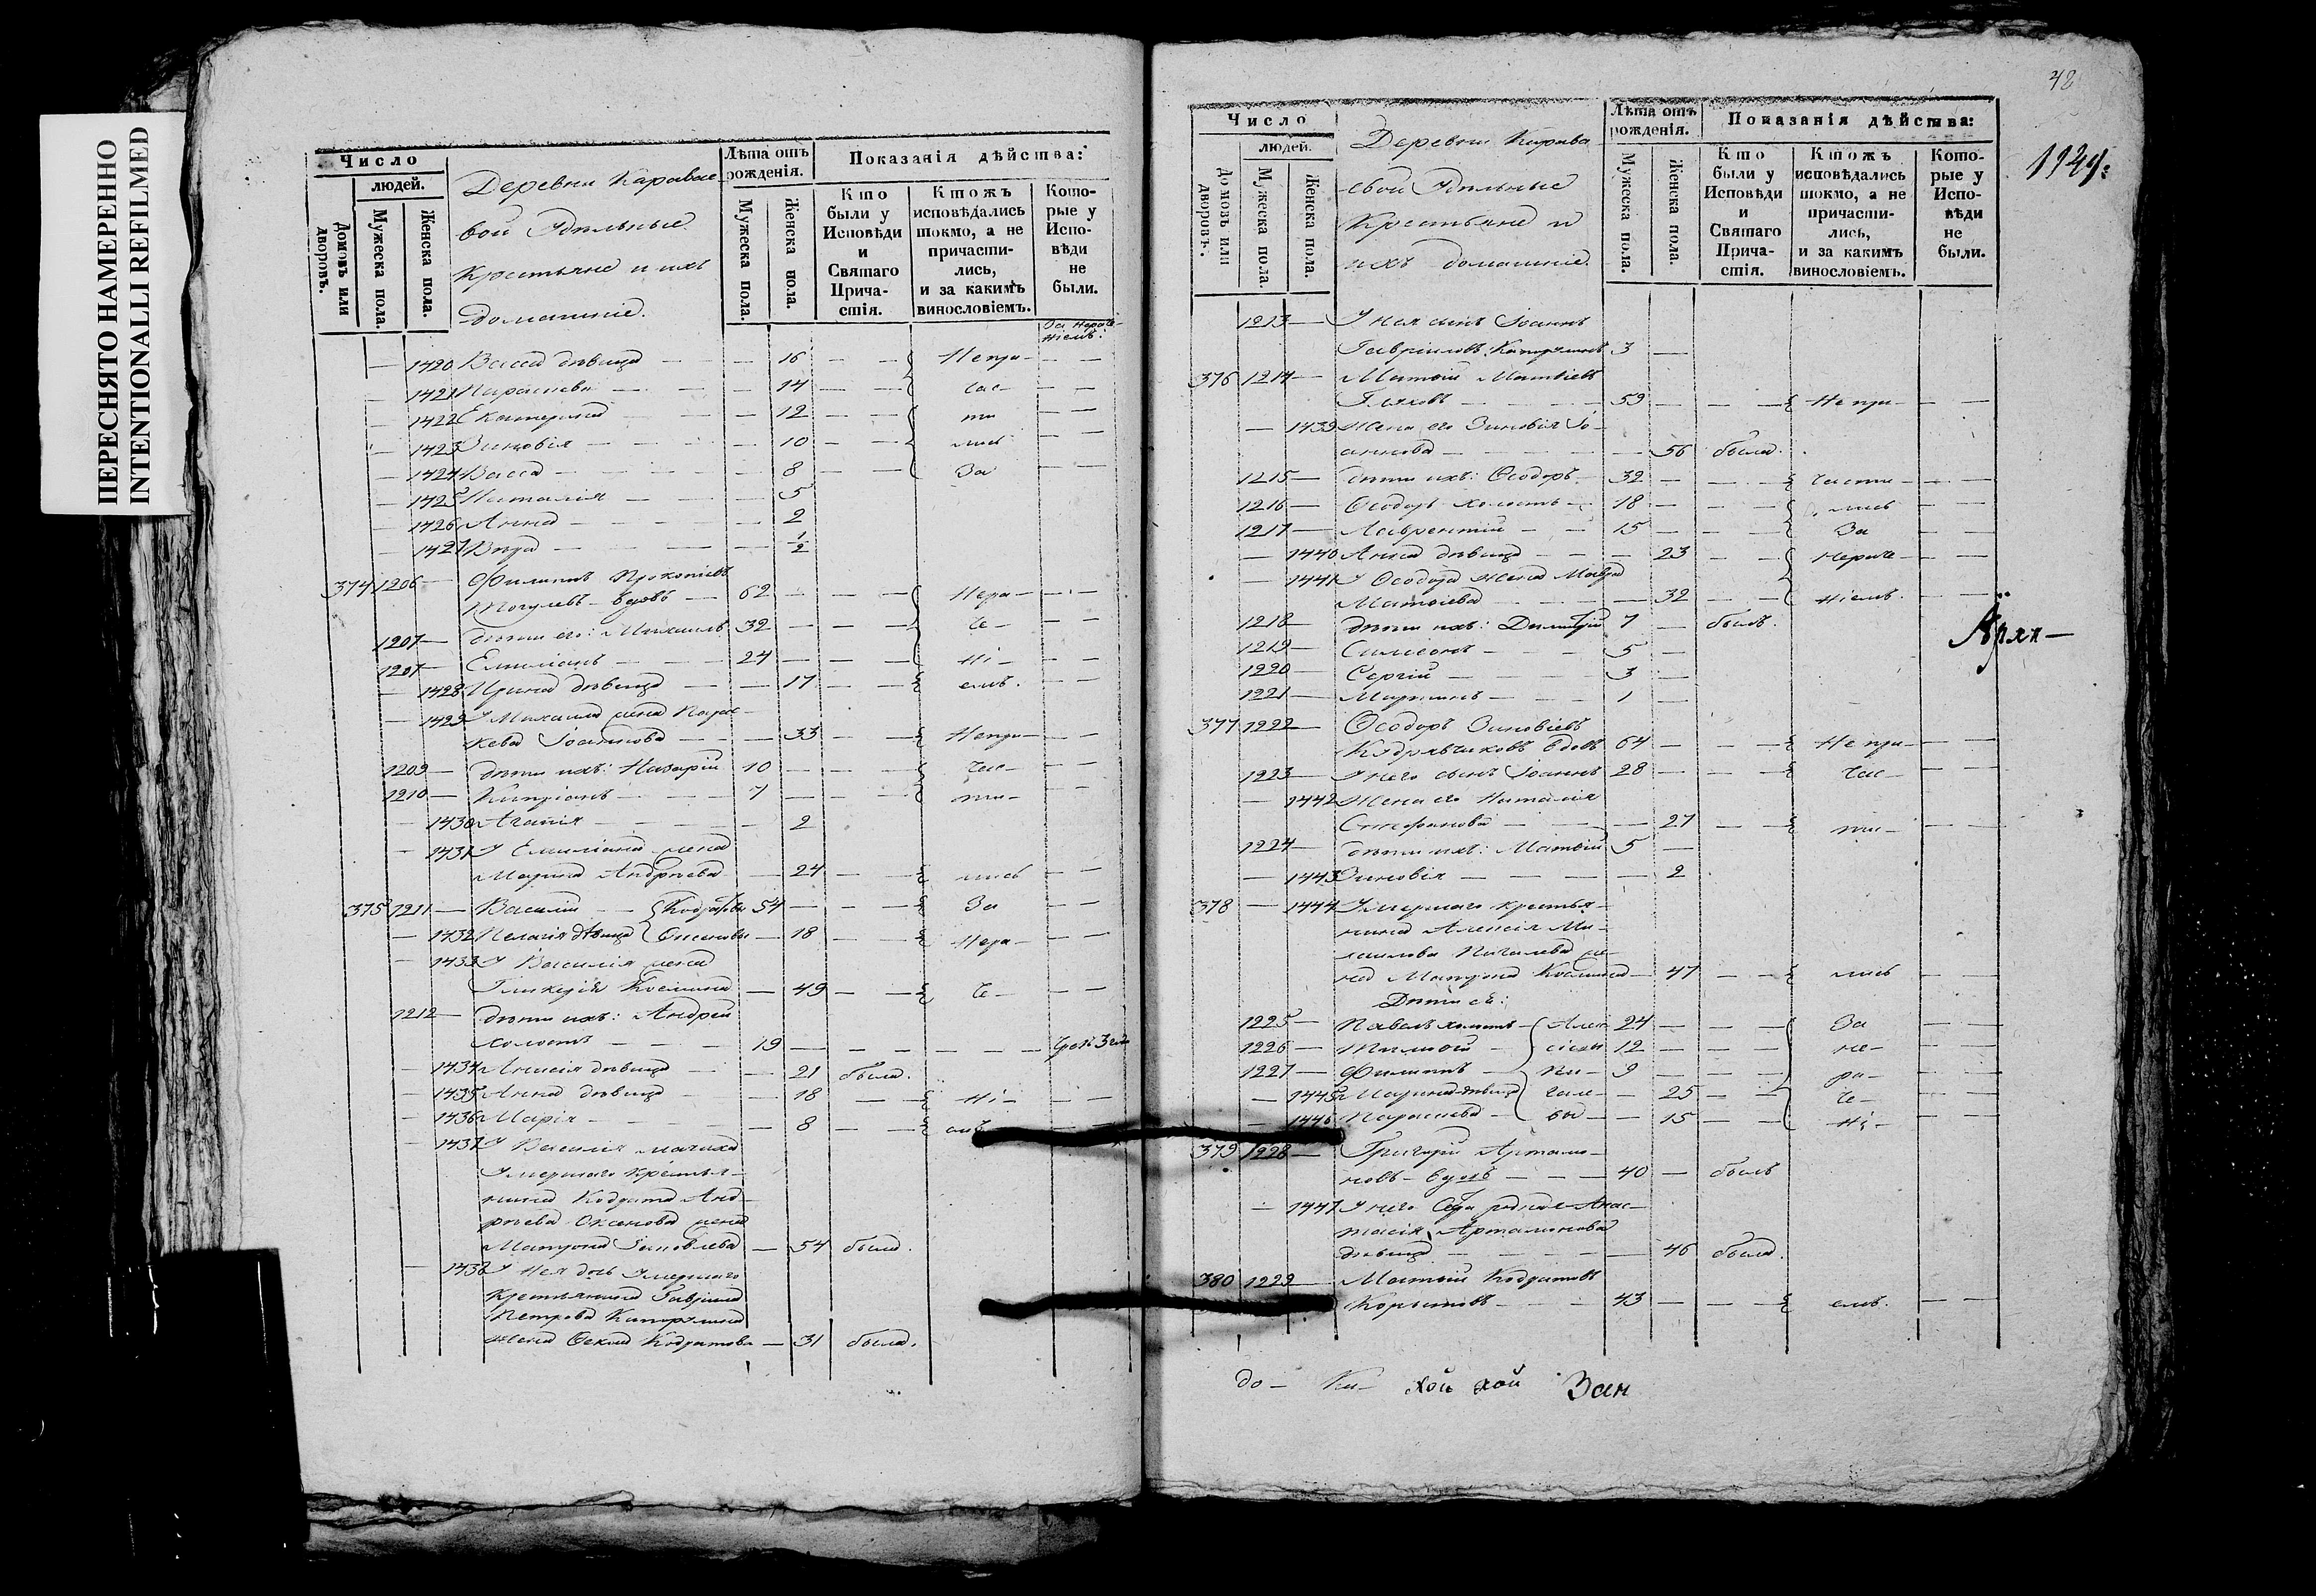 ПЕРЕСНЯТО НАМЕРЕННО
INTENTIONALLI REFILMED
Число
людей.
Домовъ или дворовъ.
Мужеска пола.
Женска пола.
Деревни Каравае-
вой Удѣльные
Крестьяне и ихъ
домашніе.
Лѣта отъ рожденія.
Мужеска пола.
Женска пола.
Показанія дѣйства:
Кто были у Исповѣди и Святаго Причастія.
Ктожъ исповѣдались токмо, а не причастились, и за какимъ винословіемъ.
Которые у Исповѣди не были.
За нераче-
ніемъ.
— 1420 Васса дѣвица — 16 — Непри-
— 1421 Параскева — 14 — час-
— 1422 Екатерина — 12 — ти
— 1423 Зиновія — 10 — лись
— 1424 Васса — 8 — За
— 1425 Наталія — 5
— 1426 Анна — 2
— 1427 Вѣра — 1/2
374 1206 — Филиппъ Прокопіевъ
вдовъ — 62 — Нера-
1207 — дѣти его: Михаилъ 32 — че-
1207 — Емиліанъ — 24 — ні-
— 1428 Ирина дѣвица — 17 — емъ.
— 1429 У Михаила жена Парас-
кева Іоаннова — 33 — Непри-
1209 — дѣти ихъ: Назарій 10 — час-
1210 — Кипріанъ — 7 — ти-
— 1430 Агапія — 2
— 1431 У Емиліана жена
Марина Андреева — 24 — лись
375 1211 — Василій — Кодратовы 54 — За
— 1432 Пелагія дѣвица Оксеновы — 18 — Нера-
— 1433 У Василія жена
Гликерія Козмина — 49 — че-
1212 — дѣти ихъ: Андрей
холостъ — 19 —
— 1434 Анисія дѣвица — 21 была.
— 1435 Анна дѣвица — 18 — ні-
— 1436 Марія — 8 — емъ
— 1437 У Василія мачиха
Умершаго крестья-
нина Кодрата Анд-
реева Оксенова жена
Матрона Іаковлева — 54 была.
— 1438 У нея дочь Умершаго
крестьянина Гавріила
Петрова
жена Фекла Кодратова — 31 была.
42
1924:
Число
людей.
Домовъ или дворовъ.
Мужеска пола.
Женска пола.
Деревни Карава-
евой Удѣльные
Крестьяне и
ихъ домашніе.
Лѣта отъ рожденія.
Мужеска пола.
Женска пола.
Показанія дѣйства:
Кто были у Исповѣди и Святаго Причастія.
Ктожъ исповѣдались токмо, а не причастились, и за какимъ винословіемъ.
Которые у Исповѣди не были.
1213 — У нея сынъ Іоаннъ
Гавріиловъ 3 —
376 1214 — Матѳій Матвѣевъ
59 — Непри-
— 1439 Жена его Зиновія Іо-
аннова — 56 была.
1215 — дѣти ихъ: Ѳеодоръ 32 — части-
1216 — Ѳеодоръ холостъ — 18 — лись
1217 — Лаврентій — 15 — За
— 1440 Анна дѣвица — 23 — нераче-
— 1441 У Ѳеодора жена Мавра
Матѳіева — 32 — ніемъ.
1218 — дѣти ихъ: Димитрій 7 — былъ.
1219 — Симеонъ — 5 —
1220 — Сергій — 3 —
1221 — Мартинъ — 1 —
377 1222 — Ѳеодоръ Зиновіевъ
Кудрявчиковъ вдовъ 64 — Непри-
1223 — У него сынъ Іоаннъ 28 — час-
— 1442 Жена его Наталія
Стефанова — 27 — ти-
1224 — дѣти ихъ: Матѳій 5 —
— 1443 Зиновія — 2
378 — 1444 Умершаго крестья-
нина Алексія Ми-
хаилова Пигалева же-
на Матрона Козмина — 47 — лись
Дѣти ея:
1225 — Павелъ холостъ — Алек 24 — За
1226 — Тимоѳей — сіевы 12 — не-
1227 — Филиппъ — Пи- 9 — ра-
— 1445 Марина дѣвица гале- — 25 — че-
— 1446 Параскева — вы — 15 — ні-
379 1228 — Григорій Артамо-
новъ — вдовъ — 40 — былъ
— 1447 У него Сестра родная Анас-
тасія Артамонова
дѣвица — 46 была.
380 1229 — Матѳій Кодратовъ
Корытовъ — 43 — емъ.
до-